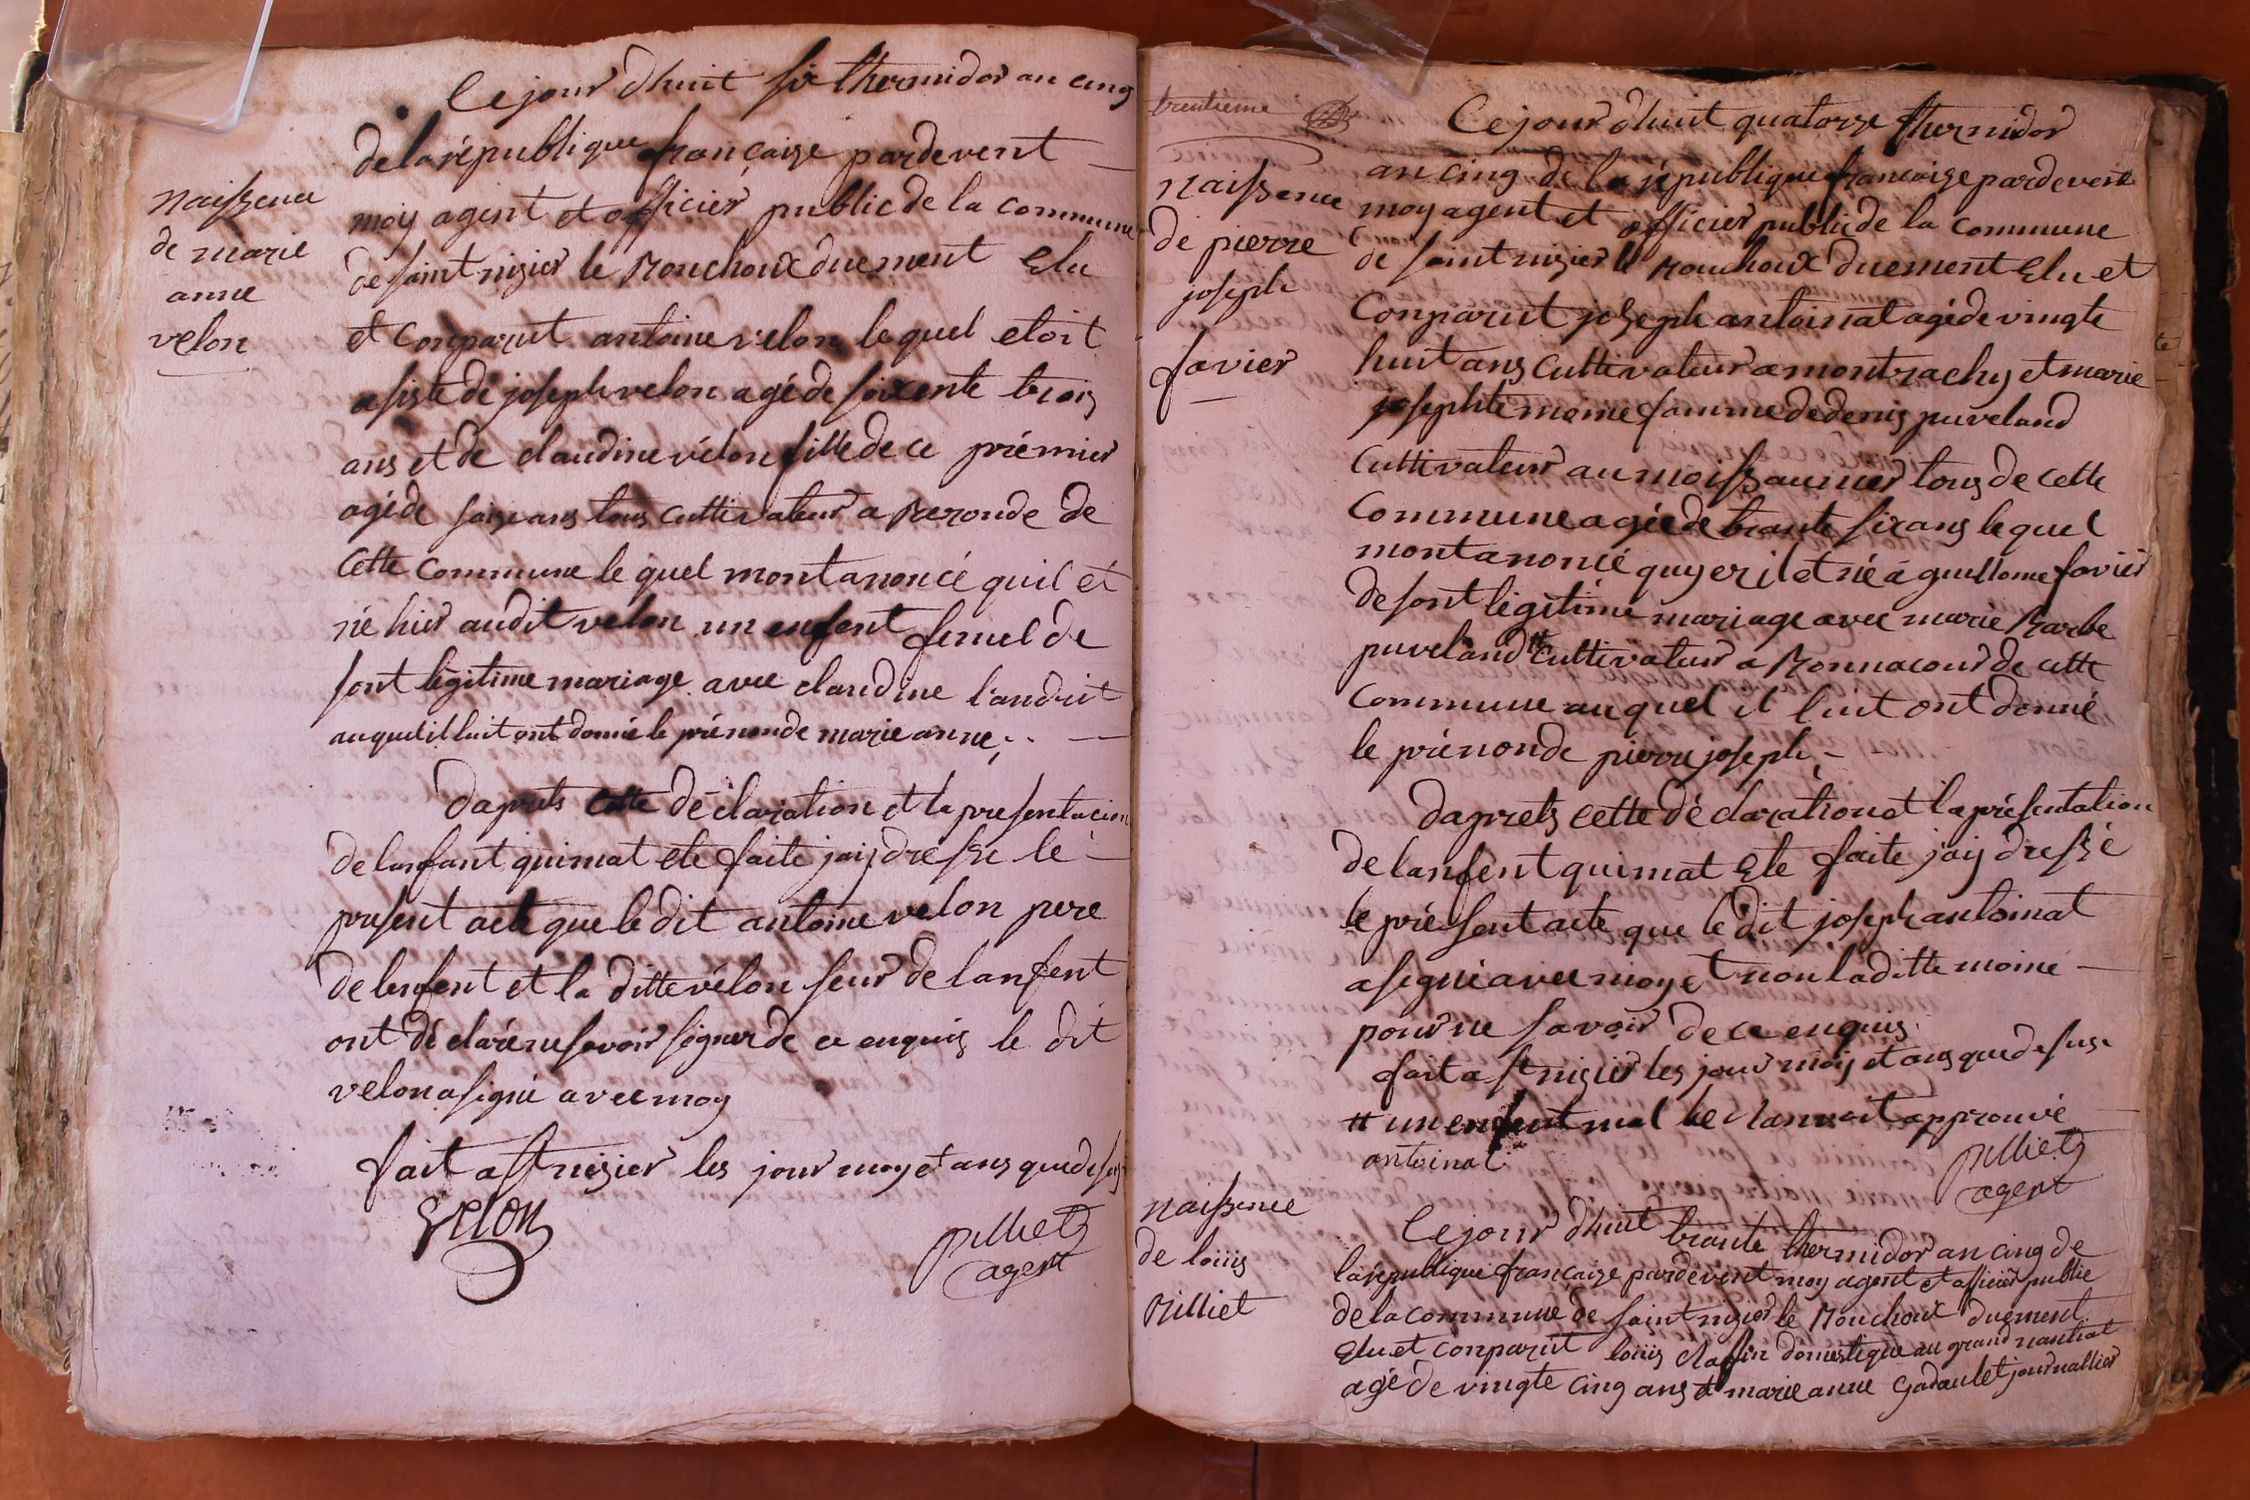 naissence
de marie
anne
velon
Cejour dhuit six thermidor an cinq
de la république françaize pardevent
moy agent et officier public de la commune
de saint nizier le Bouchoux duement Elu
et conparut antoine velon lequel etoit
asisté de joseph velon agé de soixente trois
ans et de claudine vélon fille de ce prémier
agé de saize ans tous cultivateur a de
cette commune le quel mont anoncé quil et
né hier audit velon un enfent femel de
sont légitime mariage avec claudine landrit
auquel il luit ont donné le prénon de marie anne
daprets cette déclaration et la presentacion
de lanfant qui mat eté faite jaiy dressé le
present acte que le dit antoine velon pere
de lenfent et la ditte vélon seur de lanfent
ont déclaré ne savoir signer de ce enquis le dit
velon a signé avec moy
fait a st nizier les jour moy et ans que desus
velon
pilliet
agent
trentieme
naissence
de pierre
joseph
favier
Cejour dhuit quatorze thermidor
an cinq de la république françoize pardevent
moy agent et officier public de la commune
de saint nizier le Bouchoux duement Elu et
Conparut joseph antoinat agé de vingte
huit ans cultivateur a montrachy et marie
josephte moine famme de denis puveland
cultivateur au moissaunier tous de cette
Commune agée de trante six ans lequel
mont anoncé quyer il et né a guillome favier
de sont légitime mariage avec marie Barbe
puveland # cultivateur a Bonnacour de cette
commune auquel il luit ont donné
le prénon de pierre joseph
daprets cette déclaration et la présentation
de lanfent qui mat eté faite jaiy dressé
le présent acte que le dit joseph antoinat
a signé avec moy et non la ditte moine
pour ne savoir de ce enquis
fait a st nizier les jour moy et ans que desus
# un enfent mal le approuvé
antoinat
pilliet
agent
naissence
de louis
Rilliet
Cejour dhuit trante thermidor an cinq de
la république françaize pardevent moy agent et officier public
de la commune de saint nizier le Bouchoux duement
Elu et conparut louis domestique au grand nantiat
agé de vingte cinq ans et marie anne journallier